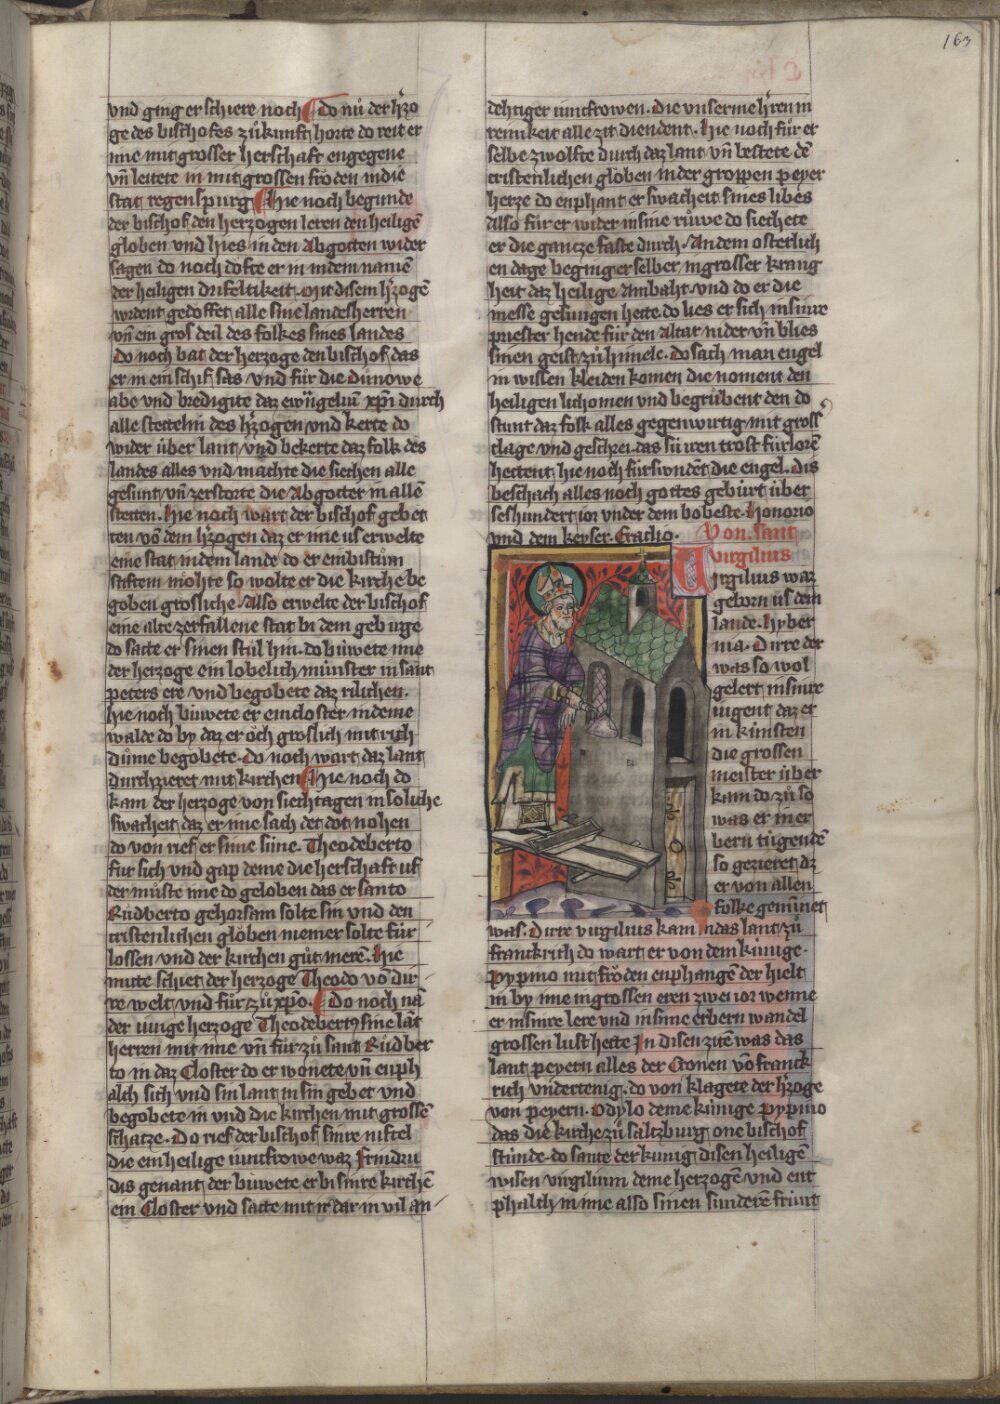 163
vnd ging er schiere noch Do nuͦ der h'zo
ge des bischofes zuͦkunft horte do reit er
ime mit grosser herschaft engegene
vn̄ leitete in mit grossen froͤden in die
stat regenspurg Hie noch begunde
der bischof den herzogen leren den heiligē
globen vnd hies in den Abgotten wider
sagen do noch dofte er in in dem namē
der heiligen drifeltikeit. Mit disem h'zogē
wrdent gedoffet alle sine landesherren
vn̄ ein gros deil des folkes sines landes
Do noch bat der herzoge den bischof das
er in ein schif sas vnd fuͤr die duͦnowe
abe vnd bredigite daz ewāgeliū xp̄i durch
alle stettelin des h'zogen vnd kerte do
wider uͤber lant vnd bekerte daz folk des
landes alles vnd machte die siechen alle
gesunt vn̄ zerstorte die Abgoͤtter in allē
stetten. Hie noch wart der bischof gebet
ten vō dem h'zogen daz er ime us erwelte
eine stat in dem lande do er ein bistuͦm
stiften moͤhte so wolte er die kirche be
goben grosliche Also erwelte der bischof
eine alte zerfallene stat bi dem gebirge
do satte er sinen stuͦl hin. do buwete ime
der herzoge ein lobelich muͤnster in sant
peters ere vnd begobete daz rilichen.
Hie noch buwete er ein closter in deme
walde do by daz er oͧch groslich mit rich
duͦme begobete. Do noch wart daz lant
durchzieret mit kirchen Hie noch do
kam der herzoge von siechtagen in soliche
swacheit daz er ime sach den dot nohen
do von rief er sime sune. Theodeberto
fuͤr sich vnd gap deme die herschaft uf
der muͤste ime do geloben das er santo
Ruͦdberto gehorsam solte sin vnd den
cristenlichen gloͤben niemer solte fuͤr
lossen vnd der kirchen guͦt mere. Hie
mitte schiet der herzoge Theodo vō dir
re welt vnd fuͦr zuͦ xp̄o. Do noch nā
der iunge herzoge Theodebert9 sine lāt
herren mit ime vn̄ fuͦr zuͦ sant Ruͦdber
to in daz Closter do er wonete vn̄ enph
alch sich vnd sin lant in sin gebet vnd
begobete in vnd die kirchen mit grossē
schatze. Do rief der bischof sinre niftel
die ein heilige iuncfrowe waz Erindru
dis genant der buwete er bi sinre kirchē
ein Closter vnd satte mit ir dar in vil an
dehtiger iuncfrowen. Die vnserme h'ren in
reinikeit alle zit diendent. Hie noch fuͦr er
selbe zwolfte durch daz lant vn̄ bestete dē
cristenlichen gloͤben in der groppen peyer
hertze do enphant er swacheit sines libes
Also fuͦr er wider in sine ruͦwe do siechete
er die gantze faste durch. An dem osterlich
en dage beging er selber in grosser krang
heit daz heilige Ambaht vnd do er die
messe gesungen hette. do lies er sich in sinre
priester hende fuͤr den Altar nider vn̄ blies
sinen geist zuͦ himele. Do sach man engel
in wissen kleiden komen die noment den
heiligen lichomen vnd begrubent den do
stunt daz folk alles gegenwirtig mit gross'
clage vnd geschrei. das sü iren trost fuͤrlorē
hettent hie noch fuͤrswndēt die engel. Dis
beschach alles noch gottes geburt uͤber
seshundert ior vnder dem bobeste. Honorio
vnd dem keyser. Eraclio. Von. sant
virgilius
Virgilius waz
geborn us dem
lande. Hyber
nia. Dirre der
was so wol
gelert in sinre
iugent daz er
in kuͤnsten
die grossen
meister uͤber
kam do zuͦ so
was er in er
bern tugendē
so gezieret dz
er von allen
folke geminnet
was. Dirre virgilius kam in das lant zuͦ
franckrich do wart er von dem kuͤnige.
Pypino mit froͤden enphangē der hielt
in by ime in grossen eren zwei ior wenne
er in sinre lere vnd in sinre erbern wandel
grossen lust hette In disen zitē was das
lant peyern alles der Cronen vō franck
rich vndertenig. do von klagete der h'zoge
von peyern. Odylo deme kuͤnige Pypino
das die kirche zuͦ saltzburg one bischof
stuͤnde. do sante der kunig disen heiligē
wisen virgilium deme herzogē vnd ent
phalch in ime also sinen sunderē fruͤnt